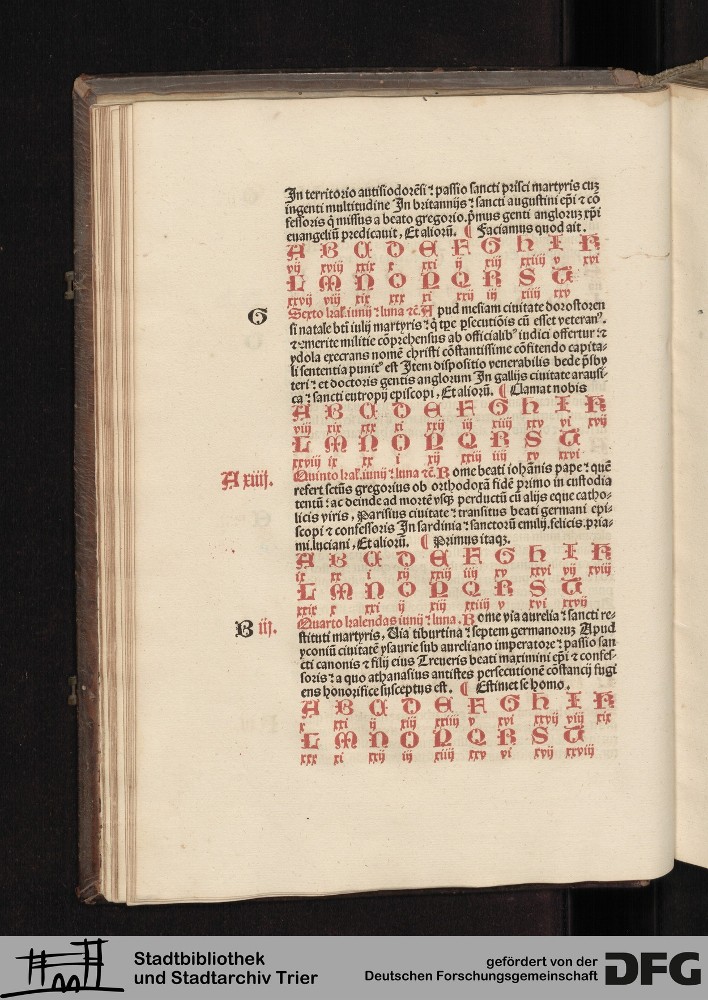 In territorio autisiodorēsi ⁊ passio sancti prisci martyris cuꝫ
ingenti multitudine In britannijs ⁊ sancti augustini ep̄i ⁊ cō
fessoris q̇ missus a beato gregorio. p̄mus genti angloruꝫ xp̄i
euangeliū predicauit, Et aliorū. ¶ Faciamus quod ait.
A B C D E F G H I K
vij xviij xxix x xxi ij xiij xxiiij v xvi
L M N O P Q R S T
xxvij viij xix xxx xi xxij iij xiiij xxv
G Sexto kal. iunij ⁊ luna ⁊c̄. Apud mesiam ciuitate dorostoren
si natale bti̅ iulij martyris ⁊ q̇ tp̄e p̱secutiōis cū esset veteranꝰ.
⁊ emerite militie cōprehensus ab officialibꝰ iudici offertur ⁊ ⁊
ydola execrans nomē christi cōstantissime cōfitendo capita-
li sententia punitꝰ est Item dispositio venerabilis bede p̄sby
teri ⁊ et doctoris gentis anglorum In gallijs ciuitate arausi-
ca ⁊ sancti eutropij episcopi, Et aliorū. ¶ Clamat nobis
A B C D E F G H I K
viij xix xxx xi xxij iij xiiij xxv vi xvij
L M N O P Q R S T
xxviij ix xx i xij xxiij iiij xv xxvi
A xiiij. Quinto kal. iunij ⁊ luna ⁊c̄. Rome beati iohānis pape ⁊ quē
refert sctūs gregorius ob orthodoxā fidē primo in custodia
tentū ⁊ ac deinde ad mortē vsqꝫ perductū cū alijs eque catho-
licis viris, Parisius ciuitate ⁊ transitus beati germani epi-
scopi ⁊ confessoris In sardinia ⁊ sanctorū emilij. felicis. pria-
mi. luciani, Et aliorū. ¶ Primus itaqꝫ.
A B C D E F G H I K
ix xx i xij xxiij iiij xv xxvi vij xviij
L M N O P Q R S T
xxix x xxi ij xiij xxiiij v xvi xxvij
B iij. Quarto kalendas iunij ⁊ luna. Rome via aurelia ⁊ sancti re-
stituti martyris, Via tiburtina ⁊ septem germanoruꝫ Apud
yconiū ciuitatē ysaurie sub aureliano imperatore ⁊ passio san
cti canonis ⁊ filij eius Treueris beati maximini ep̄i ⁊ confes-
soris ⁊ a quo athanasius antistes persecutionē cōstancij fugi
ens honorifice susceptus est. ¶ Estimet se homo.
A B C D E F G H I K
x xxi ij xiij xxiiij v xvi xxvij viij xix
L M N O P Q R S T
xxx xi xxij iij xiiij xxv vi xvij xxviij
Stadtbibliothek
und Stadtarchiv Trier
gefördert von der
Deutschen Forschungsgemeinschaft
DFG